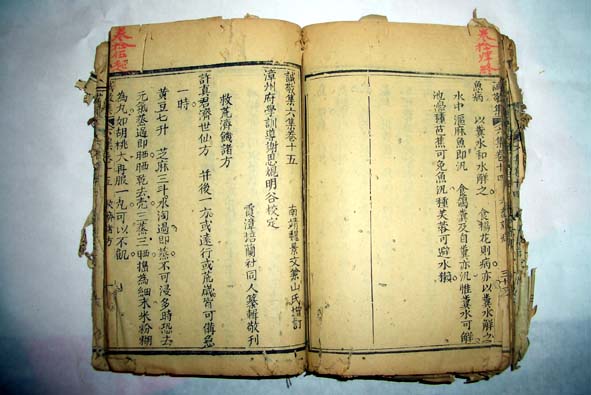 魚病 以糞水和水解之 食楊花則病亦以糞水解之
水中漚麻魚即汎 食鴿糞及自糞亦汎惟糞水可解
池邊種芭蕉可免魚汎種芙蓉可避水獺
誠敬集六集卷十五
漳州府學訓導謝思焜明谷校定
南靖魏景文葉山氏增訂
霞漳培蘭社同人纂輯敬刊
救荒濟饑諸方
許真君濟世仙方 并後一方或遠行或荒歲皆可備急
一時
黃豆七升 芝麻三斗水淘過即蒸不可浸多時恐去
元氣蒸過即晒晒乾去壳三蒸三晒搗為細末米粉糊
為丸如胡桃大再服一丸可以不飢